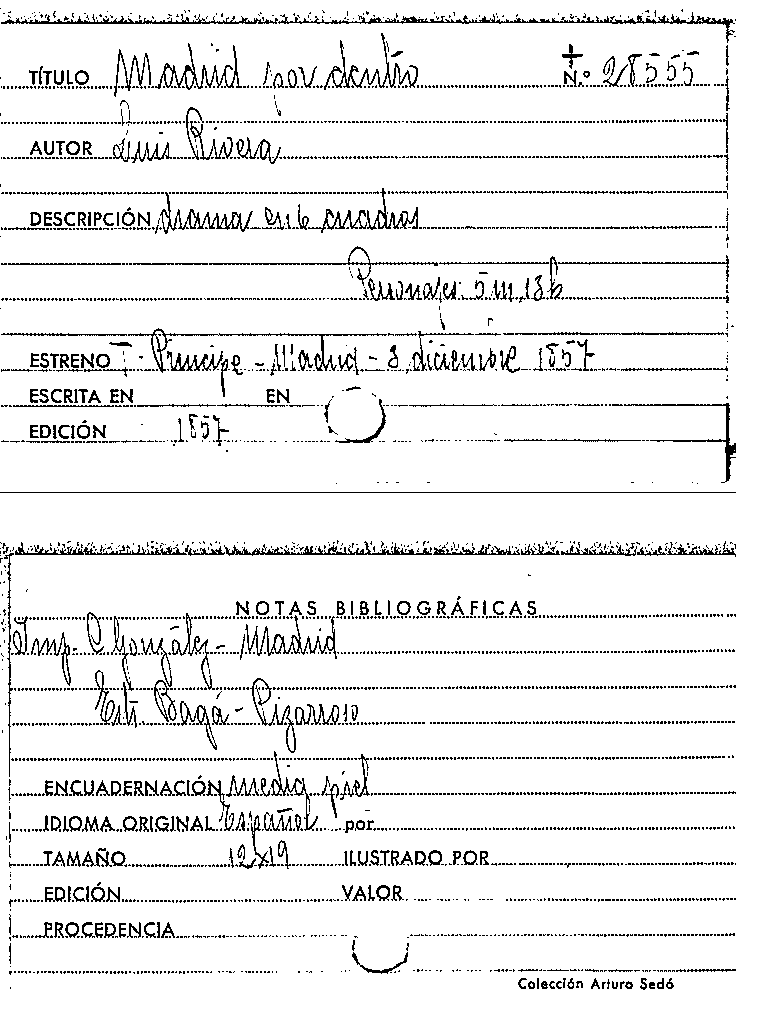 TÍTULO Madrid por dentro N.º 28555
AUTOR Luis Rivera
DESCRIPCIÓN drama en 6 cuadros
Personajes: 5 m, 13 h
ESTRENO T. Principe - Madrid - 3 diciembre 1857
ESCRITA EN EN
EDICIÓN 1857
NOTAS BIBLIOGRÁFICAS
Imp. C. González - Madrid
Bagá - Pizarroso
ENCUADERNACIÓN media piel
IDIOMA ORIGINAL Español por
TAMAÑO 12x19 ILUSTRADO POR
EDICIÓN VALOR
PROCEDENCIA
Colección Arturo Sedó